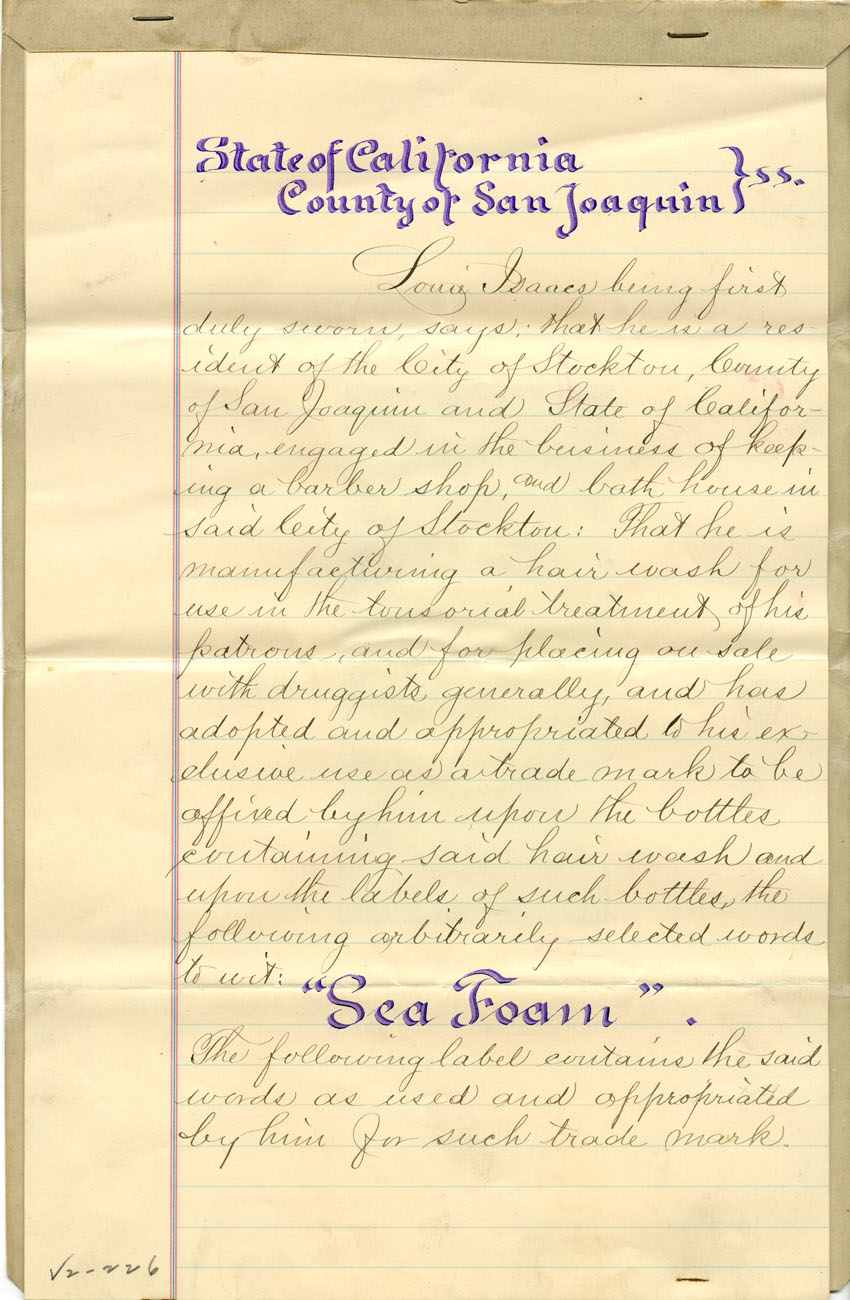 State of California
County of San Joaquin } ss.
Louis Isaacs being first
duly sworn, says: that he is a res-
ident of the City of Stockton, County
of San Joaquin and State of Califor-
nia, engaged in the business of keep-
ing a barber shop, and bath house in
said City of Stockton: That he is
manufacturing a hair wash for
use in the tonsorial treatment of his
patrons, and for placing on sale
with druggists generally, and has
adopted and appropriated to his ex-
clusive use as a trade mark to be
affixed by him upon the bottles
containing said hair wash and
upon the labels of such bottles, the
following arbitrarily selected words
to wit:
"Sea Foam".
The following label contains the said
words as used and appropriated
by him for such trade mark.
√2-226